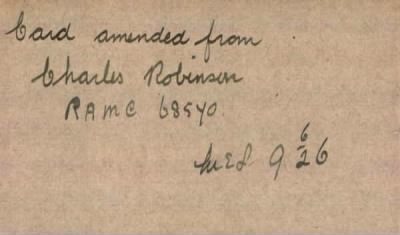 Card amended from
Charles Robinson
RAMC 68540.
9 6/26